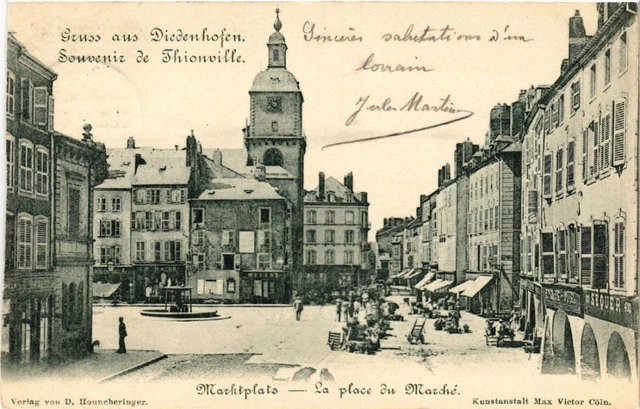 Gruss aus Diedenhofen.
Souvenir de Thionville.
Sincères salutations d'un
lorrain
Jules Martin
Marktplats — La place du Marché.
Verlag von D. Houncheringer.
Kunstanstalt Max Victor Cöln.